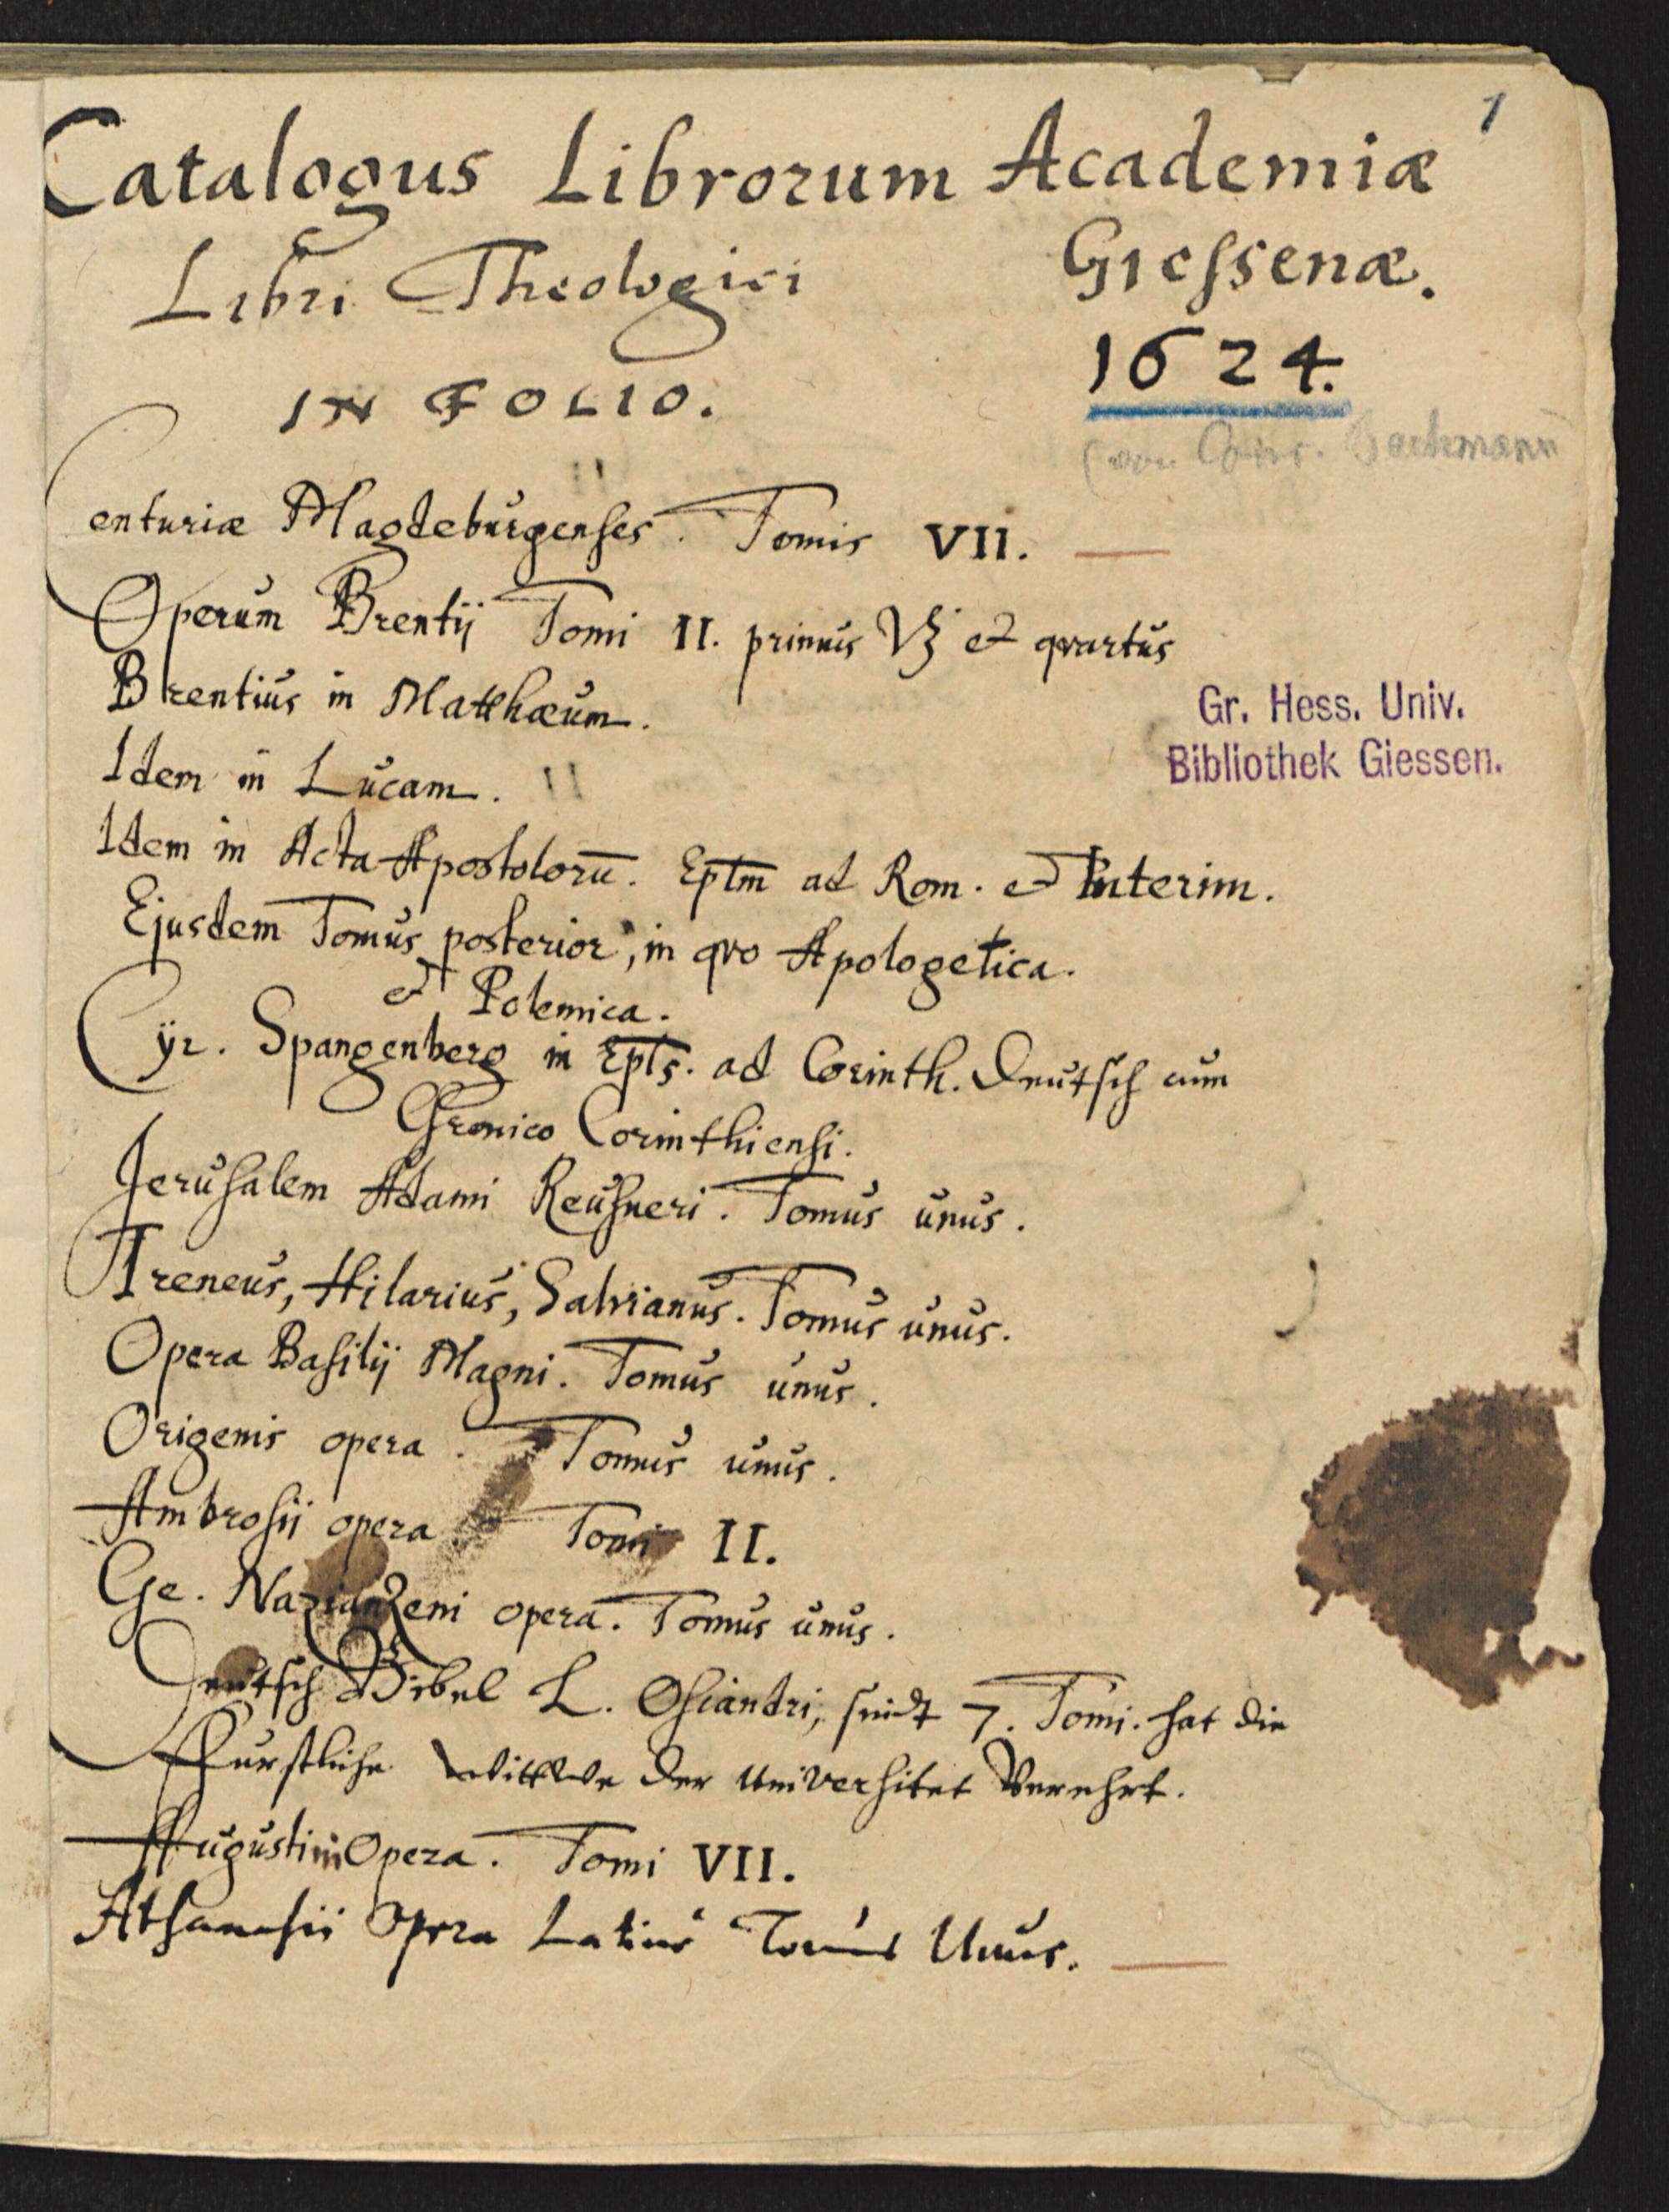 1
Catalogus Librorum Academiæ
Giessenæ.
Libri Theologici
1624.
IN FOLIO.
Centuriæ Magdeburgenses. Tomis VII.
Operum Brentij Tomi II. primus Vꝫ et qvartus
Brentius in Matthæum.
Gr. Hess. Univ.
Bibliothek Giessen.
Idem in Lucam.
Idem in Acta Apostolorū. Eptm̄ ad Rom. et Interim.
Ejusdem Tomus posterior, in qvo Apologetica.
et Polemica.
Cÿr. Spangenberg in Epls. ad Corinth. Deutsch cum
Chronico Corinthiensi.
Jerusalem Adami Reusneri. Tomus unus.
Ireneus, Hilarius, Salvianus. Tomus unus.
Opera Basilij Magni. Tomus unus.
Origenis opera. Tomus unus.
Ambrosii opera Tomi II.
Ge. Nazianzeni opera. Tomus unus.
Deutsch Bibel L. Osiandri, seindt 7. Tomi. hat die
Fürstliche Wittwe der Universitet Verehrt.
Augustini Opera. Tomi VII.
Athanasii Opera Latine Tomus Unus.